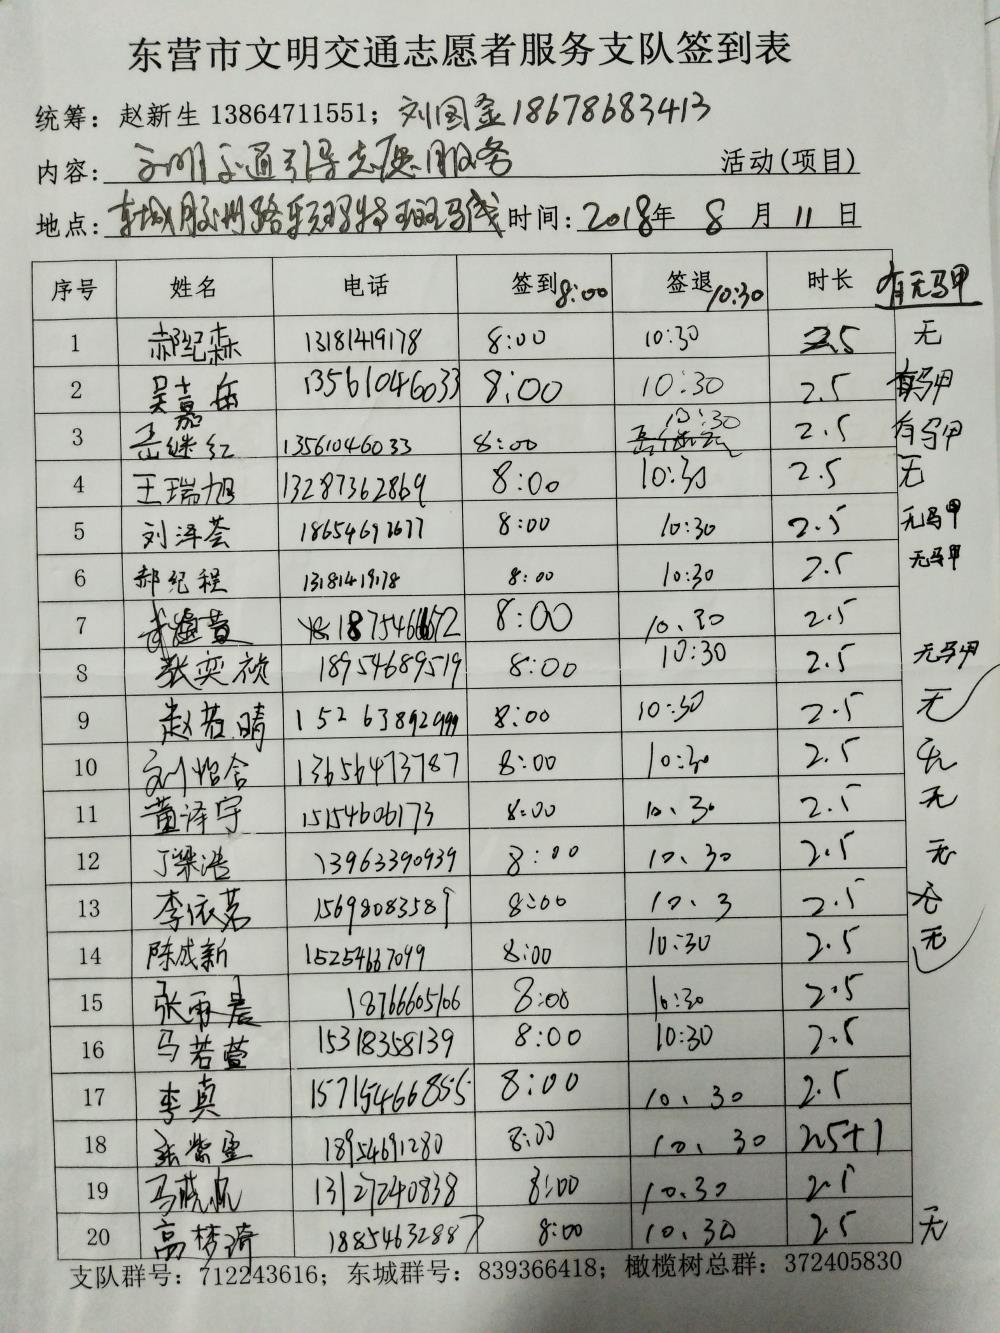 东营市文明交通志愿者服务支队签到表
统筹：赵新生 13864711551；刘国金 18678683413
内容：文明交通引导志愿服务 活动(项目)
地点：东城胶州路 斑马线 时间：2018年 8 月 11 日
序号 姓名 电话 签到8:00 签退10:30 时长 有无马甲
1 郝纪森 13181419178 8:00 10:30 2.5 无
2 吴嘉岳 13561046033 8:00 10:30 2.5 有马甲
3 岳继红 13561046033 8:00 10:30 2.5 有马甲
4 王瑞旭 13287362869 8:00 10:30 2.5 无
5 刘泽荟 8:00 10:30 2.5 无马甲
6 郝纪程 13181419178 8:00 10:30 2.5 无马甲
7 8:00 10.30 2.5
8 张奕祯 18954689519 8:00 10:30 2.5 无马甲
9 赵若晴 8:00 10:30 2.5 无
10 刘怡含 13656473787 8:00 10:30 2.5 无
11 董泽宇 15154606173 8:00 10.30 2.5 无
12 丁梁浩 13963390939 8:00 10、30 2.5 无
13 李依茗 15698083589 8:00 10、3 2.5 无
14 陈成新 15254667099 8:00 10:30 2.5 无
15 张雨晨 18766605106 8:00 10:30 2.5
16 马若萱 15318358139 8:00 10:30 2.5
17 李真 15715466855 8:00 10、30 2.5
18 18954691280 8:00 10、30 2.5+1
19 马晓帆 13127240838 8:00 10.30 2.5
20 高梦琦 18854632887 8:00 10.30 2.5 无
支队群号：712243616；东城群号：839366418；橄榄树总群：372405830